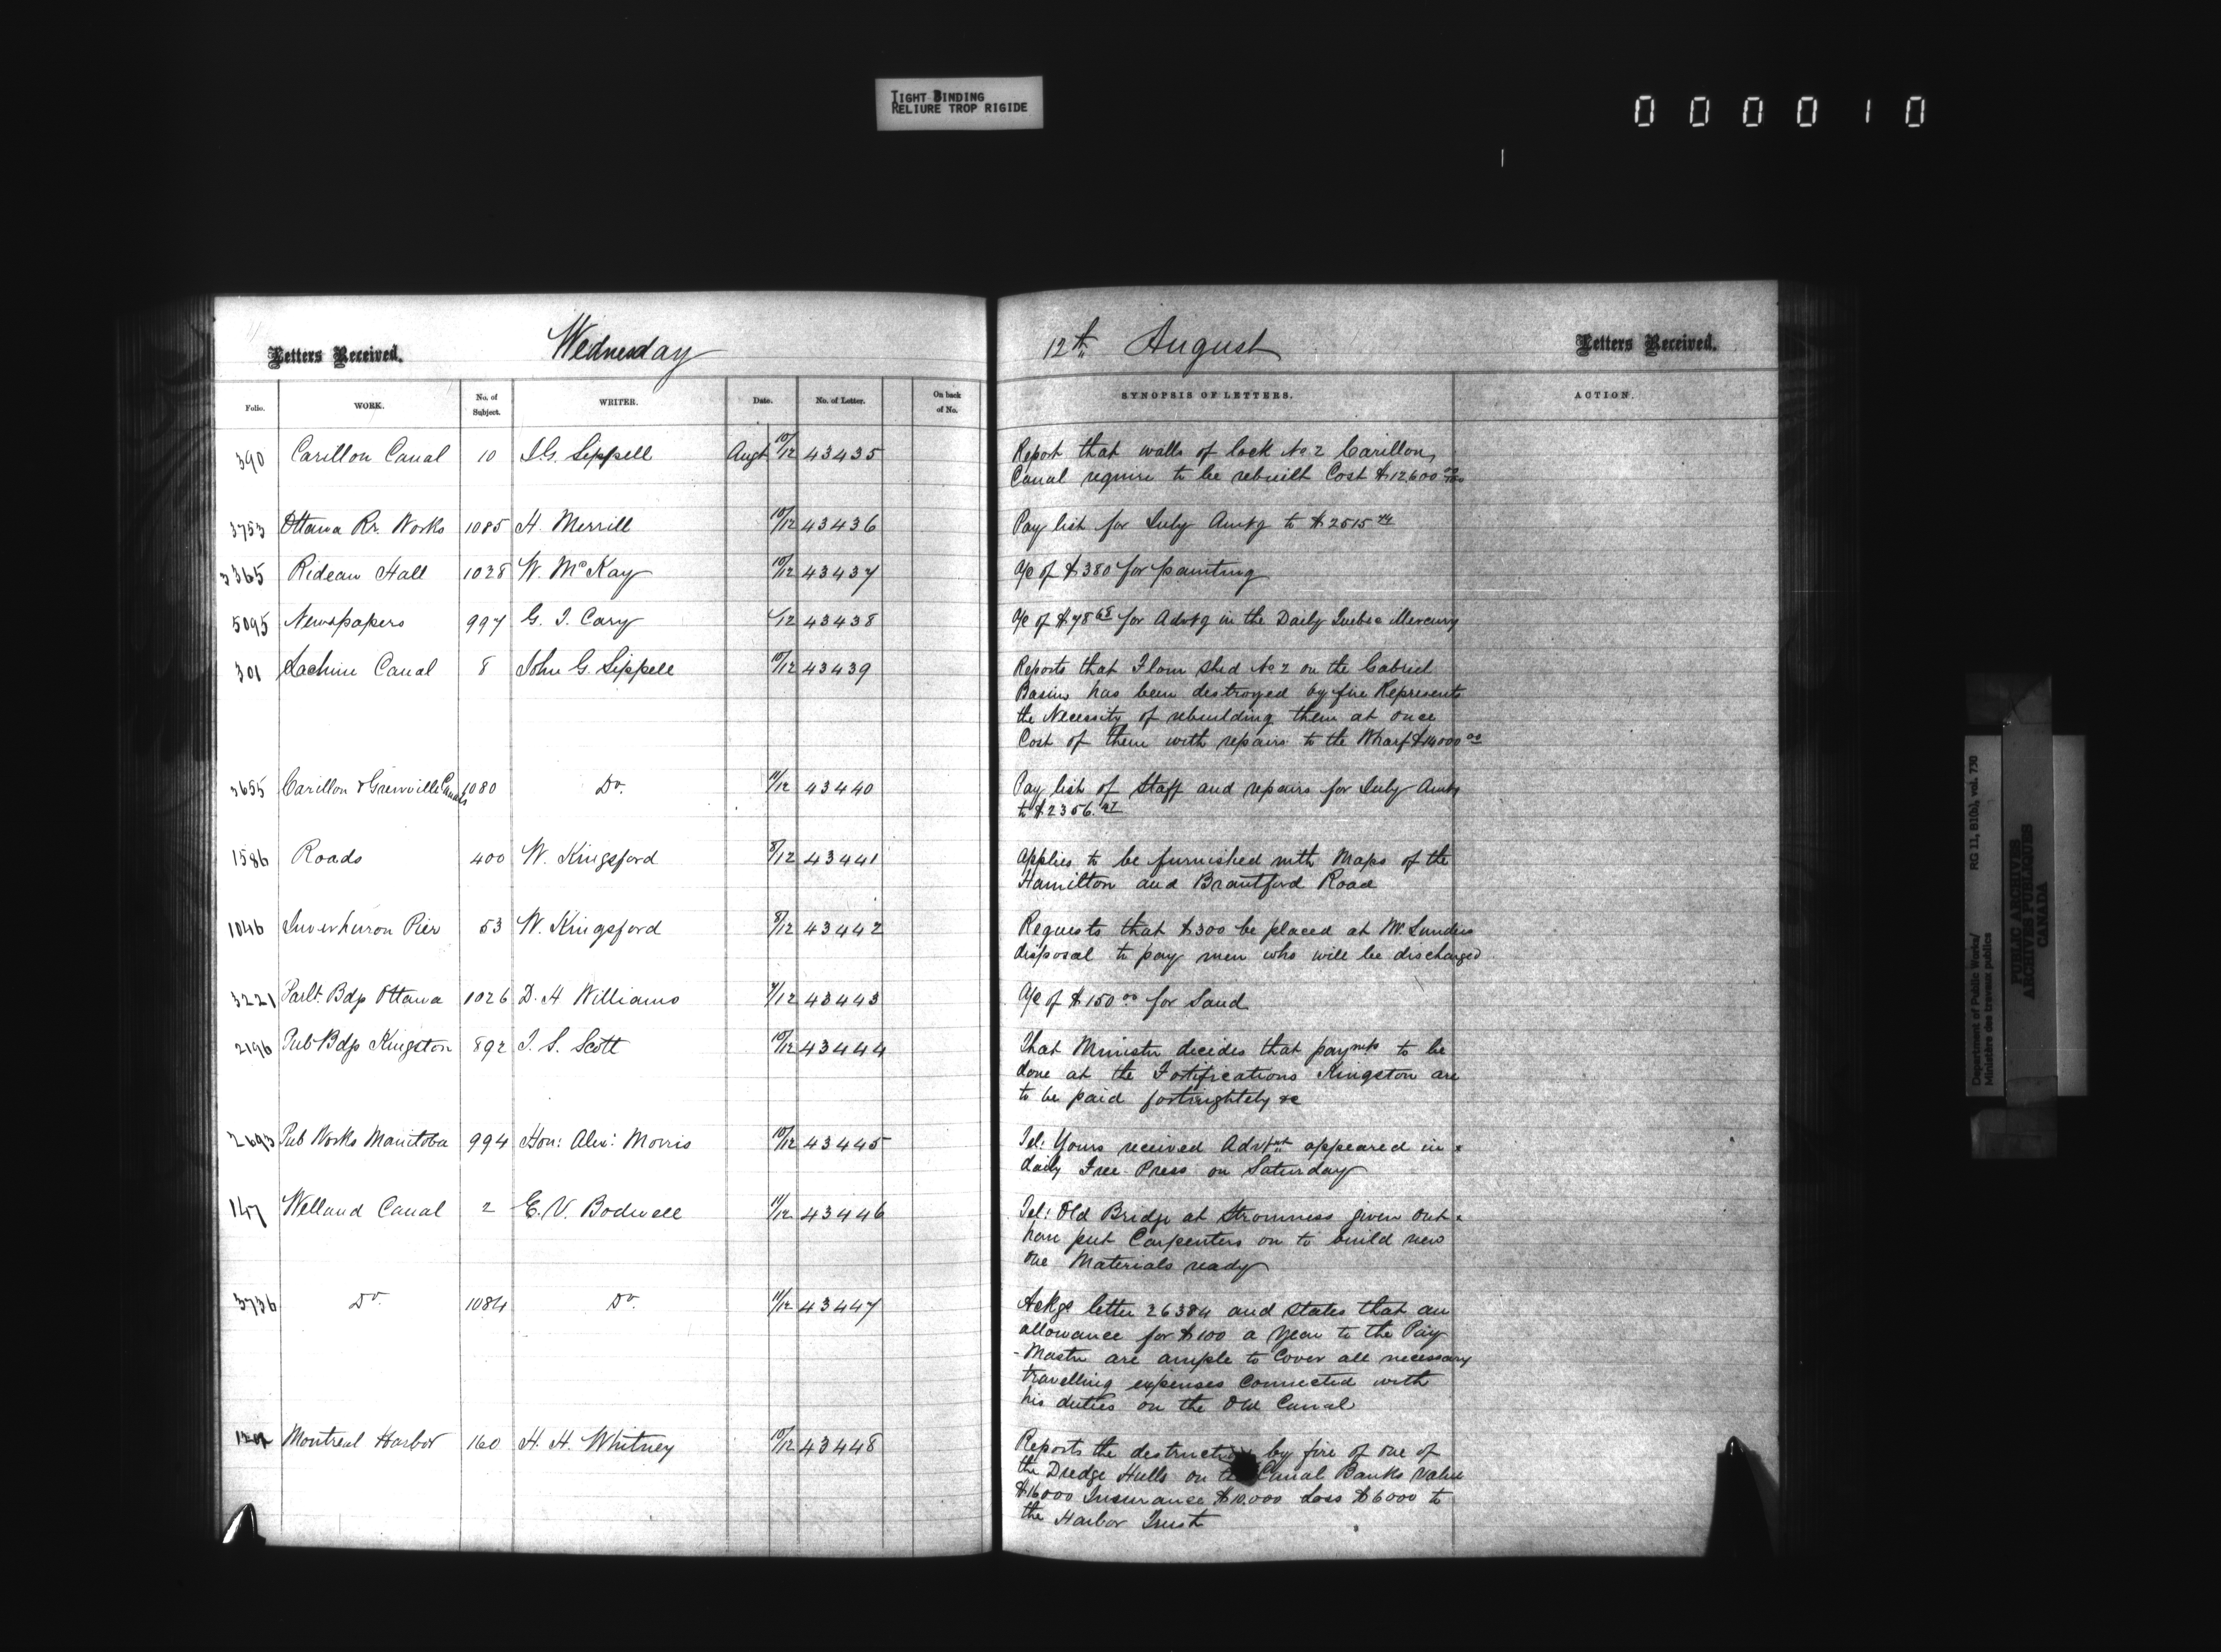 TIGHT BINDING
RELIURE TROP RIGIDE
000010
Letters Received. Wednesday
Folio. WORK. No. of Subject. WRITER. Date. No. of Letter. On back of No.
390 Carillon Canal 10 J.G. Sippell Augt 10/12 43435
3753 Ottawa Rr. Works 1085 H. Merrill 10/12 43436
3365 Rideau Hall 1028 W. McKay 10/12 43437
5095 Newspapers 997 G. T. Cary /12 43438
301 Lachine Canal 8 John G. Sippell 10/12 43439
3655 Carillon & Grenville Canals 1080 Do. 11/12 43440
1586 Roads 400 W. Kingsford 8/12 43441
1046 Inverhuron Pier 53 W. Kingsford 8/12 43442
3221 Parlt. Bdgs Ottawa 1026 D. H Williams 7/12 43443
2196 Pub Bdgs Kingston 892 T. S. Scott 10/12 43444
2693 Pub Works Manitoba 994 Hon: Alex: Morris 10/12 43445
147 Welland Canal 2 E. V. Bodwell 11/12 43446
3736 Do. 1084 Do. 11/12 43447
Montreal Harbor 160 H. H. Whitney 10/12 43448
12th August Letters Received.
SYNOPSIS OF LETTERS. ACTION.
Report that walls of lock No 2 Carillon
Canal require to be rebuilt Cost $12,600 00/100
Pay list for July Amtg to $2515
a/c of $380 for painting
a/c of $78 68 for Advtg in the Daily Quebec Mercury
Reports that Flour shed No 2 on the Gabriel
Basin has been destroyed by fire Represents
the Necessity of rebuilding them at once
Cost of them with repairs to the Wharf $14000 00
Pay list of Staff and repairs for July Amtg
to $2356.
applies to be furnished with Maps of the
Hamilton and Brantford Road
Requests that $300 be placed at Mr.
disposal to pay men who will be discharged
a/c of $150 00 for Sand
That Minister decides that paymts to be
done at the Fortifications Kingston are
to be paid fortnightely &c
Tel: Yours received Advt appeared in
daily Free Press on Saturday
Tel: Old Bridge at Stromness given out
have put Carpenters on to build new
one Materials ready
Ackgs letter 26384 and states that an
allowance for $100 a year to the Pay
-Master are ample to Cover all necessary
travelling expenses Connected with
his duties on the Old Canal
Reports the destruction by fire of one of
the Dredge Hulls on the Canal Banks Value
$16000 Insurance $10.000 Loss $6000 to
the Harbor Trust
Department of Public Works/
Ministère des travaux publics
RG 11, B1(b), vol. 730
PUBLIC ARCHIVES
ARCHIVES PUBLIQUES
CANADA